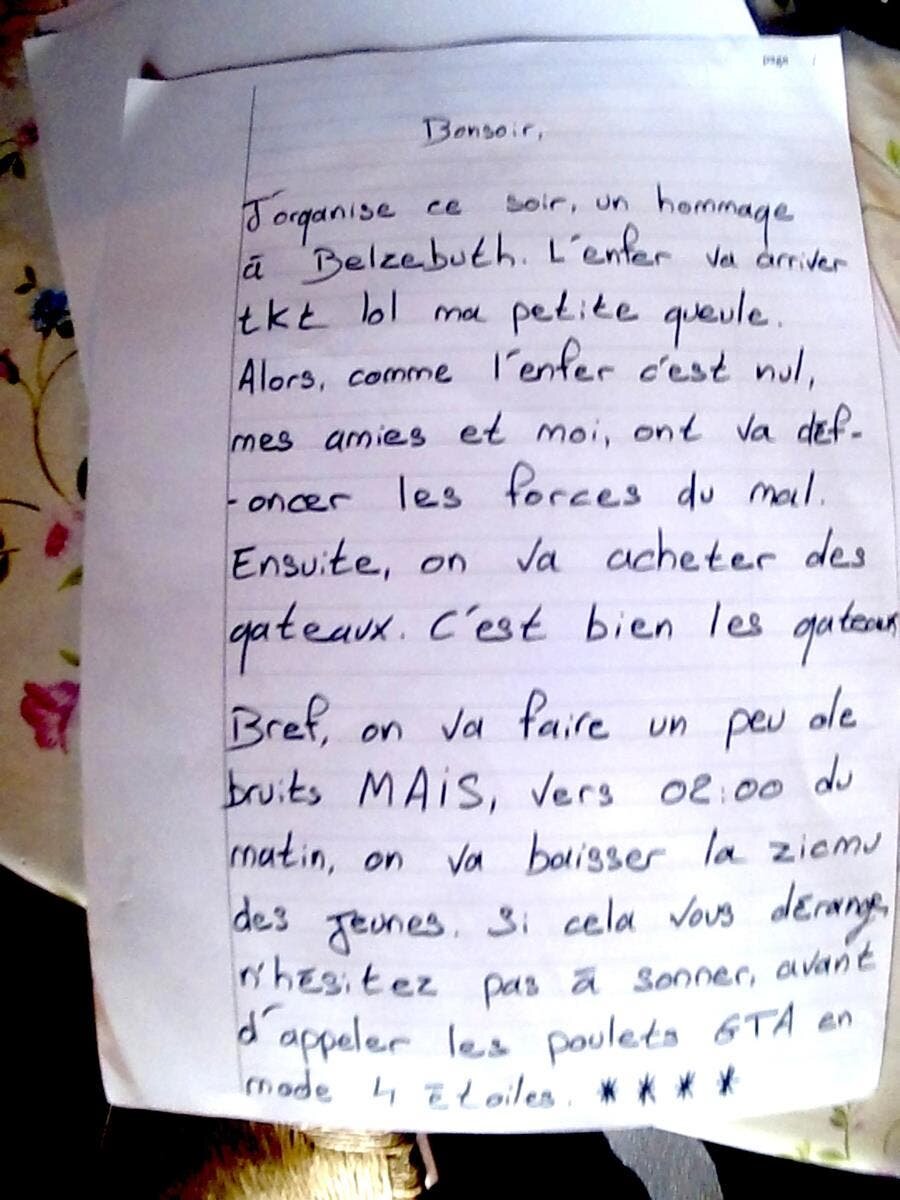 page
Bonsoir,
J'organise ce soir, un hommage
à Belzebuth. L'enfer va arriver
tkt lol ma petite gueule.
Alors, comme l'enfer c'est nul,
mes amies et moi, ont va déf-
-oncer les forces du mal.
Ensuite, on va acheter des
gateaux. C'est bien les gateaux
Bref, on va faire un peu de
bruits MAiS, vers 02:00 du
matin, on va baisser la ziemu
des jeunes. Si cela vous dérange,
n'hésitez pas à sonner, avant
d'appeler les poulets GTA en
mode 4 étoiles. ****